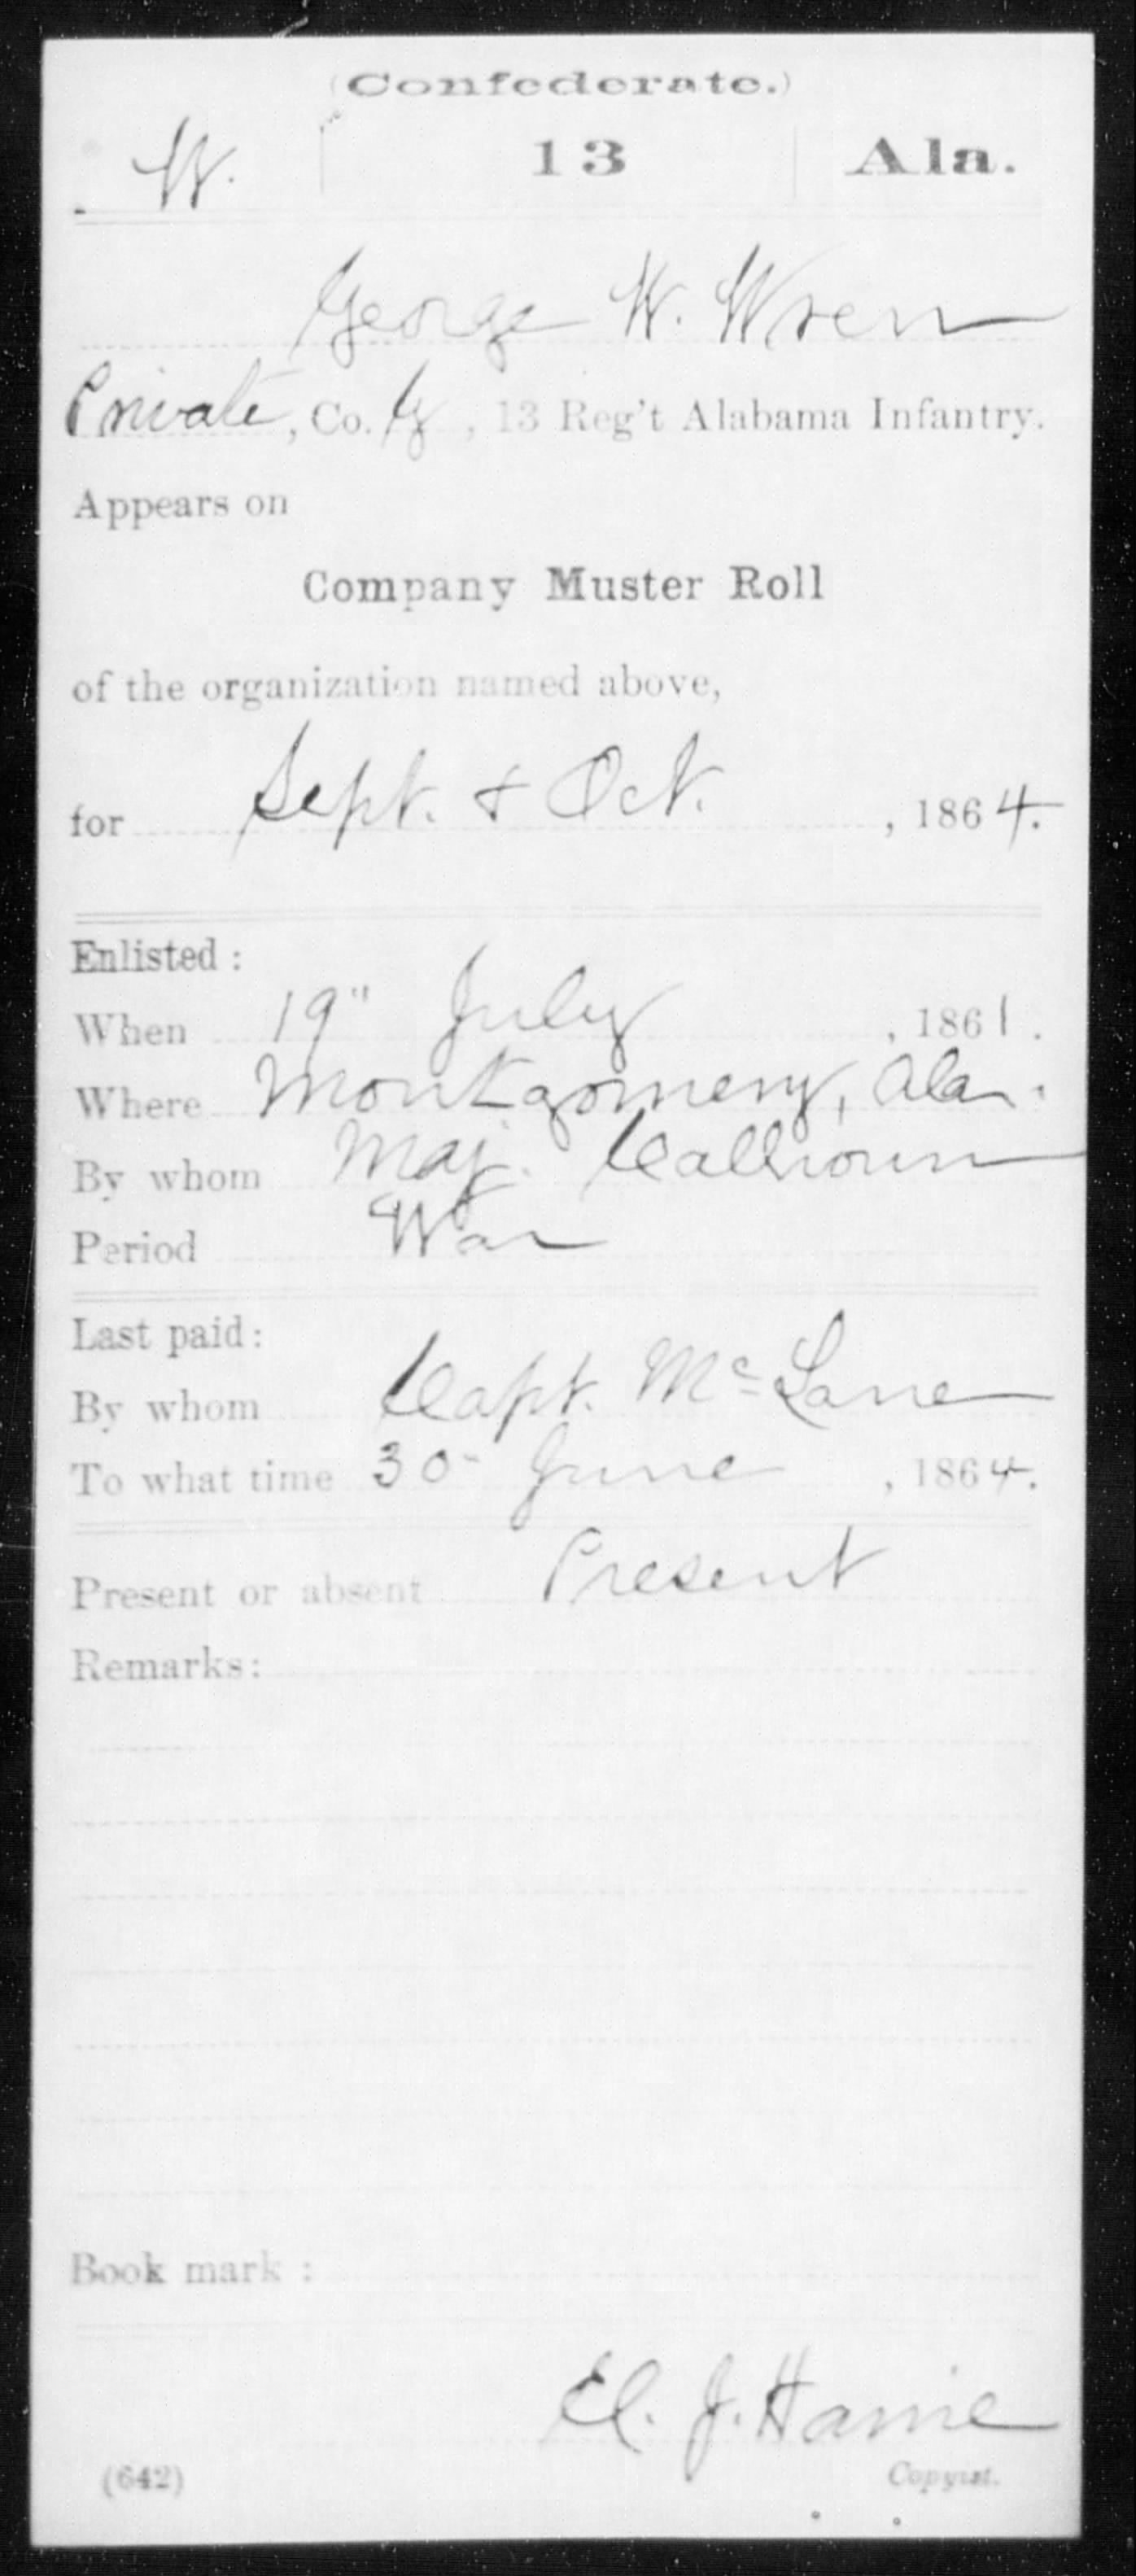 (Confederate.)
W. 13 Ala.
George W. Wren
Private, Co. G, 13 Reg't Alabama Infantry.
Appears on
Company Muster Roll
of the organization named above,
for Sept. & Oct. , 1864.
Enlisted:
When 19" July , 1861.
Where Montgomery, Ala.
By whom Maj. Calhoun
Period War
Last paid:
By whom Capt. McLane
To what time 30 June , 1864.
Present or absent Present
Remarks:
Book mark:
J.
(642) Copyist.